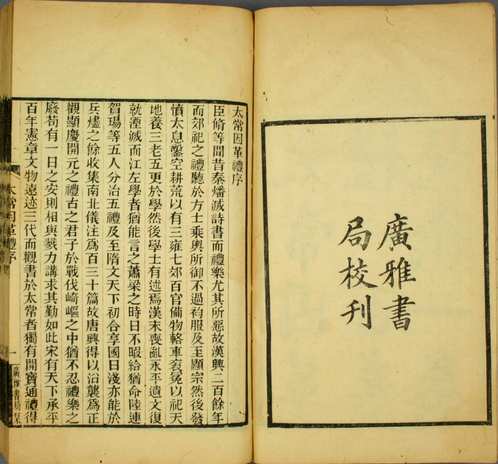 廣雅書
局校刊
太常因革禮序
臣脩等聞昔秦燔滅詩書而禮樂尤其所惡故漢興二百餘年
而郊祀之禮聽於方士乘輿所御不過袀服及至顯宗然後發
憤太息盤空耕荒以有三雍七郊百官備物輅車衮冕以祀天
地養三老五更於學然後學士有述焉漢末喪亂永平遺文復
就湮滅而江左學者猶能言之蕭梁之時日不暇給猶命陸璉
賀瑒等五人分治五禮及至隋文天下初合享國日淺亦能於
兵燼之餘收集南北儀注爲百三十篇故唐興得以沿襲爲正
觀顯慶開元之禮古之君子於戰伐崎嶇之中猶不忍禮樂之
廢苟有一日之安則相與戮力講求其勤如此宋有天下承平
百年憲章文物遠迹三代而觀書於太常者獨有開寶通禮得
太常因革禮序
一